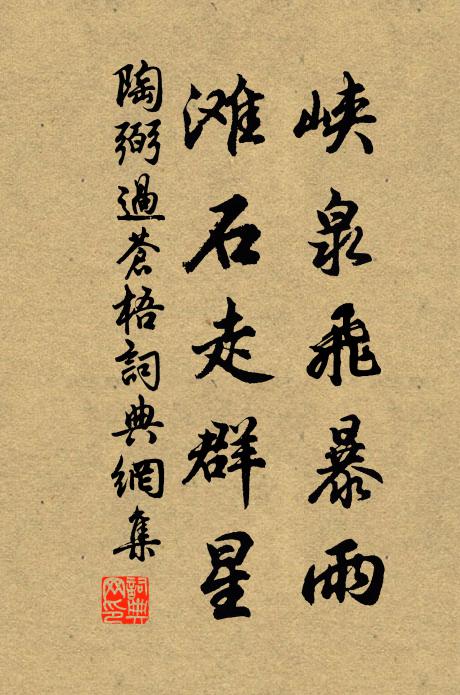 峡泉飛暴雨
滩石走群星
陶弼過蒼梧詞典網集
詞典網印